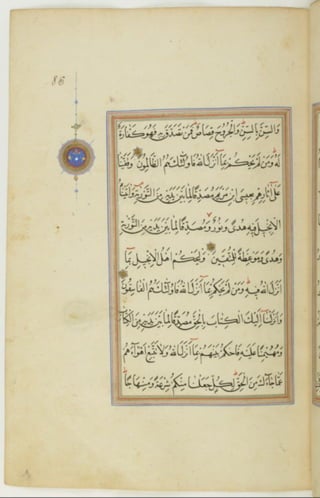 86
وَالسِّنَّ بِالسِّنِّ وَالْجُرُوحَ قِصَاصٌ فَمَنْ تَصَدَّقَ بِهِ فَهُوَ كَفَّارَةٌ
لَهُ وَمَنْ لَمْ يَحْكُمْ بِمَا أَنْزَلَ اللهُ فَأُولَئِكَ هُمُ الظَّالِمُونَ وَقَفَّيْنَا
عَلَى آثَارِهِمْ بِعِيسَى ابْنِ مَرْيَمَ مُصَدِّقًا لِمَا بَيْنَ يَدَيْهِ مِنَ التَّوْرَيةِ وَآتَيْنَاهُ
الْإِنْجِيلَ فِيهِ هُدًى وَنُورٌ وَمُصَدِّقًا لِمَا بَيْنَ يَدَيْهِ مِنَ التَّوْرَيةِ
وَهُدًى وَمَوْعِظَةً لِلْمُتَّقِينَ وَلْيَحْكُمْ أَهْلُ الْإِنْجِيلِ بِمَا
أَنْزَلَ اللهُ فِيهِ وَمَنْ لَمْ يَحْكُمْ بِمَا أَنْزَلَ اللهُ فَأُولَئِكَ هُمُ الْفَاسِقُونَ
وَأَنْزَلْنَا إِلَيْكَ الْكِتَابَ بِالْحَقِّ مُصَدِّقًا لِمَا بَيْنَ يَدَيْهِ مِنَ الْكِتَابِ
وَمُهَيْمِنًا عَلَيْهِ فَاحْكُمْ بَيْنَهُمْ بِمَا أَنْزَلَ اللهُ وَلَا تَتَّبِعْ أَهْوَاءَهُمْ
عَمَّا جَاءَكَ مِنَ الْحَقِّ لِكُلٍّ جَعَلْنَا مِنْكُمْ شِرْعَةً وَمِنْهَاجًا